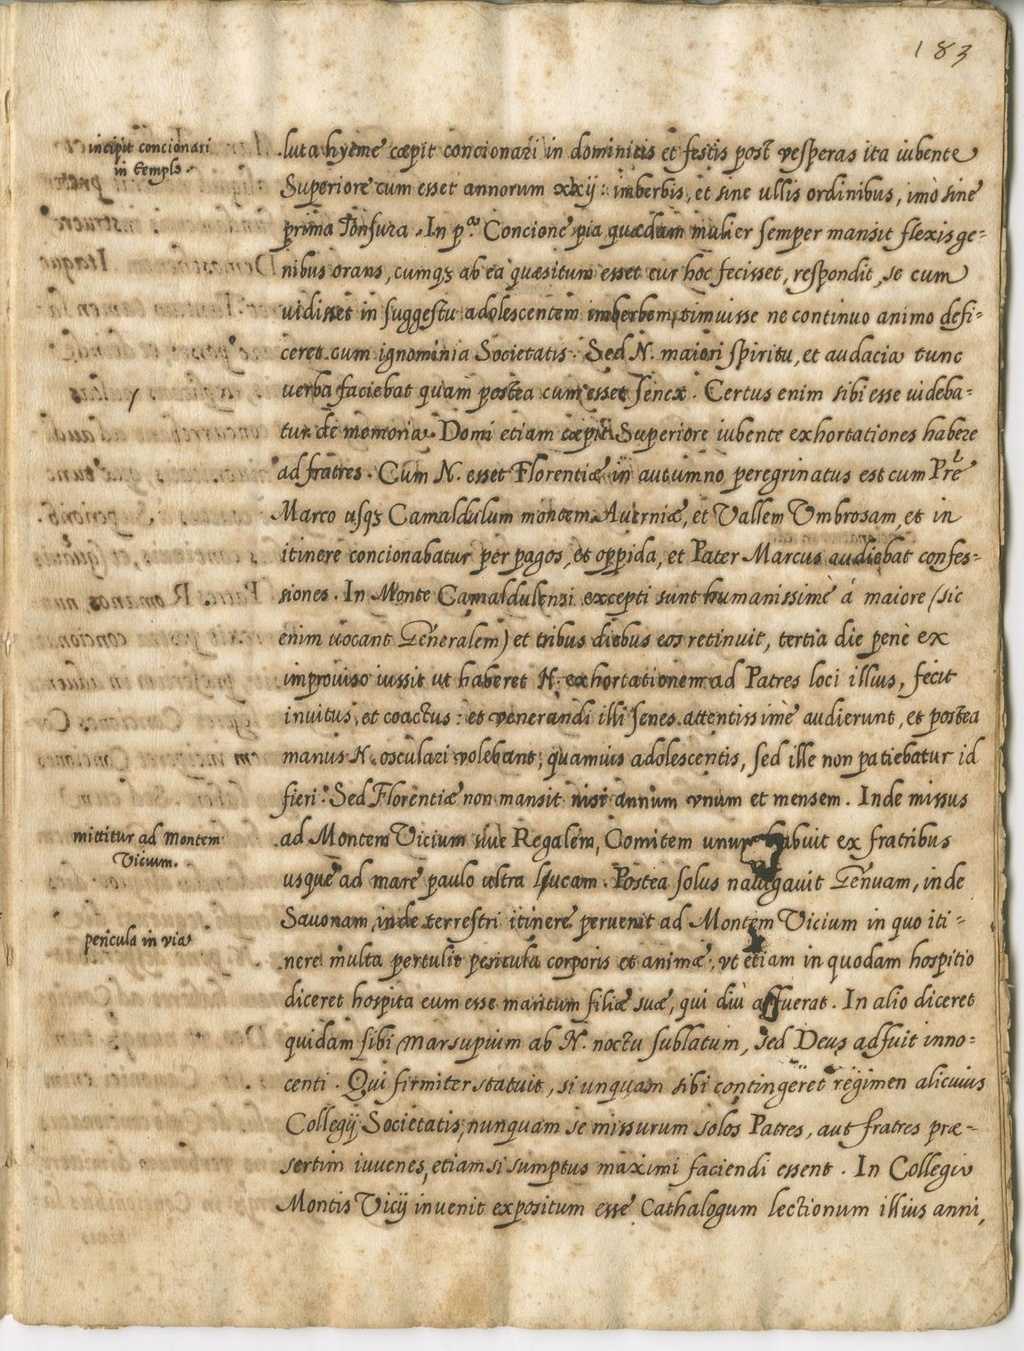 183
incipit concionari
in templo.
luta hyeme cæpit concionari in dominicis et festis post vesperas ita iubente
Superiore cum esset annorum xxij: imberbis, et sine ullis ordinibus, imò sine
prima Tonsura. In p.ª Concione pia quædam mulier semper mansit flexis ge-
nibus orans, cumq3 ab ea quæsitum esset cur hoc fecisset, respondit, se cum
uidisset in suggestu adolescentem imberbem, timuisse ne continuo animo defi-
ceret cum ignominia Societatis. Sed N. maiori spiritu, et audacia tunc
verba faciebat quam postea cum esset senex. Certus enim sibi esse uideba-
tur de memoria. Domi etiam cæpit Superiore iubente exhortationes habere
ad fratres. Cum N. esset Florentiæ in autumno peregrinatus est cum Prẽ
Marco usq3 Camaldulum montem Auerniæ, et Vallem Vmbrosam, et in
itinere concionabatur per pagos, et oppida, et Pater Marcus audiebat confes-
siones. In Monte Camaldulensi excepti sunt humanissimè á maiore (sic
enim uocant Generalem) et tribus diebus eos retinuit, tertia die penè ex
improuiso iussit ut haberet N. exhortationem ad Patres loci illius, fecit
inuitus, et coactus: et venerandi illi senes attentissimè audierunt, et postea
manus N. osculari volebant, quamuis adolescentis, sed ille non patiebatur id
fieri. Sed Florentiæ non mansit nisi annum vnum et mensem. Inde missus
mittitur ad Montem
Vicium.
ad Montem Vicium siue Regalem, Comitem unum habuit ex fratribus
usque ad mare paulo ultra Lucam. Postea solus nauigauit Genuam, inde
Sauonam, inde terrestri itinere peruenit ad Montem Vicium in quo iti-
pericula in via
nere multa pertulit pericula corporis et animæ, vt etiam in quodam hospitio
diceret hospita eum esse maritum filiæ suæ, qui diù affuerat. In alio diceret
quidam sibi marsupium ab N. noctu sublatum, sed Deus adfuit inno-
centi. Qui firmiter statuit, si unquam sibi contingeret regimen alicuius
Collegij Societatis, nunquam se missurum solos Patres, aut fratres præ-
sertim iuuenes, etiam si sumptus maximi faciendi essent. In Collegio
Montis Vicij inuenit expositum esse Cathalogum lectionum illius anni,